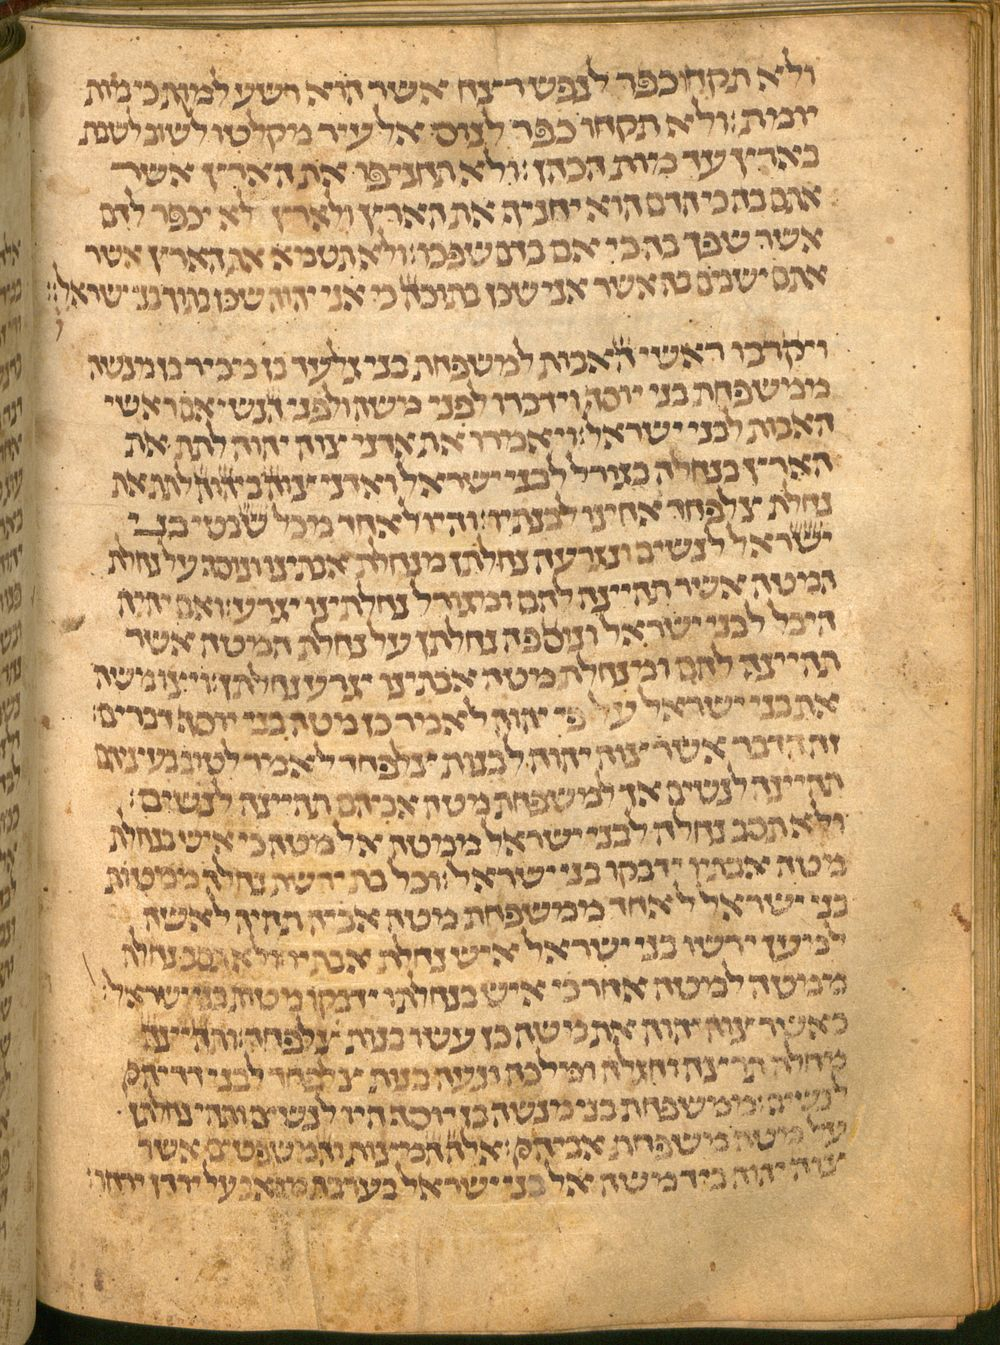 ולא תקחו כפר לנפש רצח אשר הוא רשע למות כי מות
יומת : ולא תקחו כפר לנוס אל עיר מקלטו לשוב לשבת
בארץ עד מות הכהן : ולא תחניפו את הארץ אשר
אתם בה כי הדם הוא יחניף את הארץ ולארץ לא יכפר לדם
אשר שפך בה כי אם בדם שפכו : ולא תטמא את הארץ אשר
אתם ישבים בה אשר אני שכן בתוכה כי אני יהוה שכן בתוך בני ישראל :
ויקרבו ראשי האבות למשפחת בני גלעד בן מכיר בן מנשה
ממשפחת בני יוסף וידברו לפני משה ולפני הנשיאם ראשי
האבות לבני ישראל : ויאמרו את אדני צוה יהוה לתת את
הארץ בנחלה בגורל לבני ישראל ואדני צוה ביהוה לתת את
נחלת צלפחד אחינו לבנתיו : והיו לאחד מכל שבטי בני
ישראל לנשים ונגרעה נחלתן מנחלת אבתינו ונוסף על נחלת
המטה אשר תהיינה להם ומגורל נחלתינו יגרע : ואם יהיה
היבל לבני ישראל ונוספה נחלתן על נחלת המטה אשר
תהיינה להם ומנחלת מטה אבתינו יגרע נחלתן : ויצו משה
את בני ישראל על פי יהוה לאמיר כן מטה בני יוסף דברים :
זה הדבר אשר צוה יהוה לבנות צלפחד לאמיר לטוב בעיניהם
תהיינה לנשים אך למשפחת מטה אביהם תהיינה לנשים :
ולא תסב נחלה לבני ישראל ממטה אל מטה כי איש בנחלת
מטה אבתיו ידבקו בני ישראל : וכל בת ירשת נחלה ממטות
בני ישראל לאחד ממשפחת מטה אביה תהיה לאשה
למען ירשו בני ישראל איש נחלת אבתיו : ולא תסב נחלה
ממטה למטה אחר כי איש בנחלתו ידבקו מטות בני ישראל :
כאשר צוה יהוה את משה כן עשו בנות צלפחד : ותהיינה
מחלה תרצה וחגלה ומלכה ונעה בנות צלפחד לבני דדיהם
לנשים : ממשפחת בני מנשה בן יוסף היו לנשים ותהי נחלתן
על מטה משפחת אביהם : אלה המצות והמשפטים אשר
צוה יהוה ביד משה אל בני ישראל בערבת מואב על ירדן ירחו :